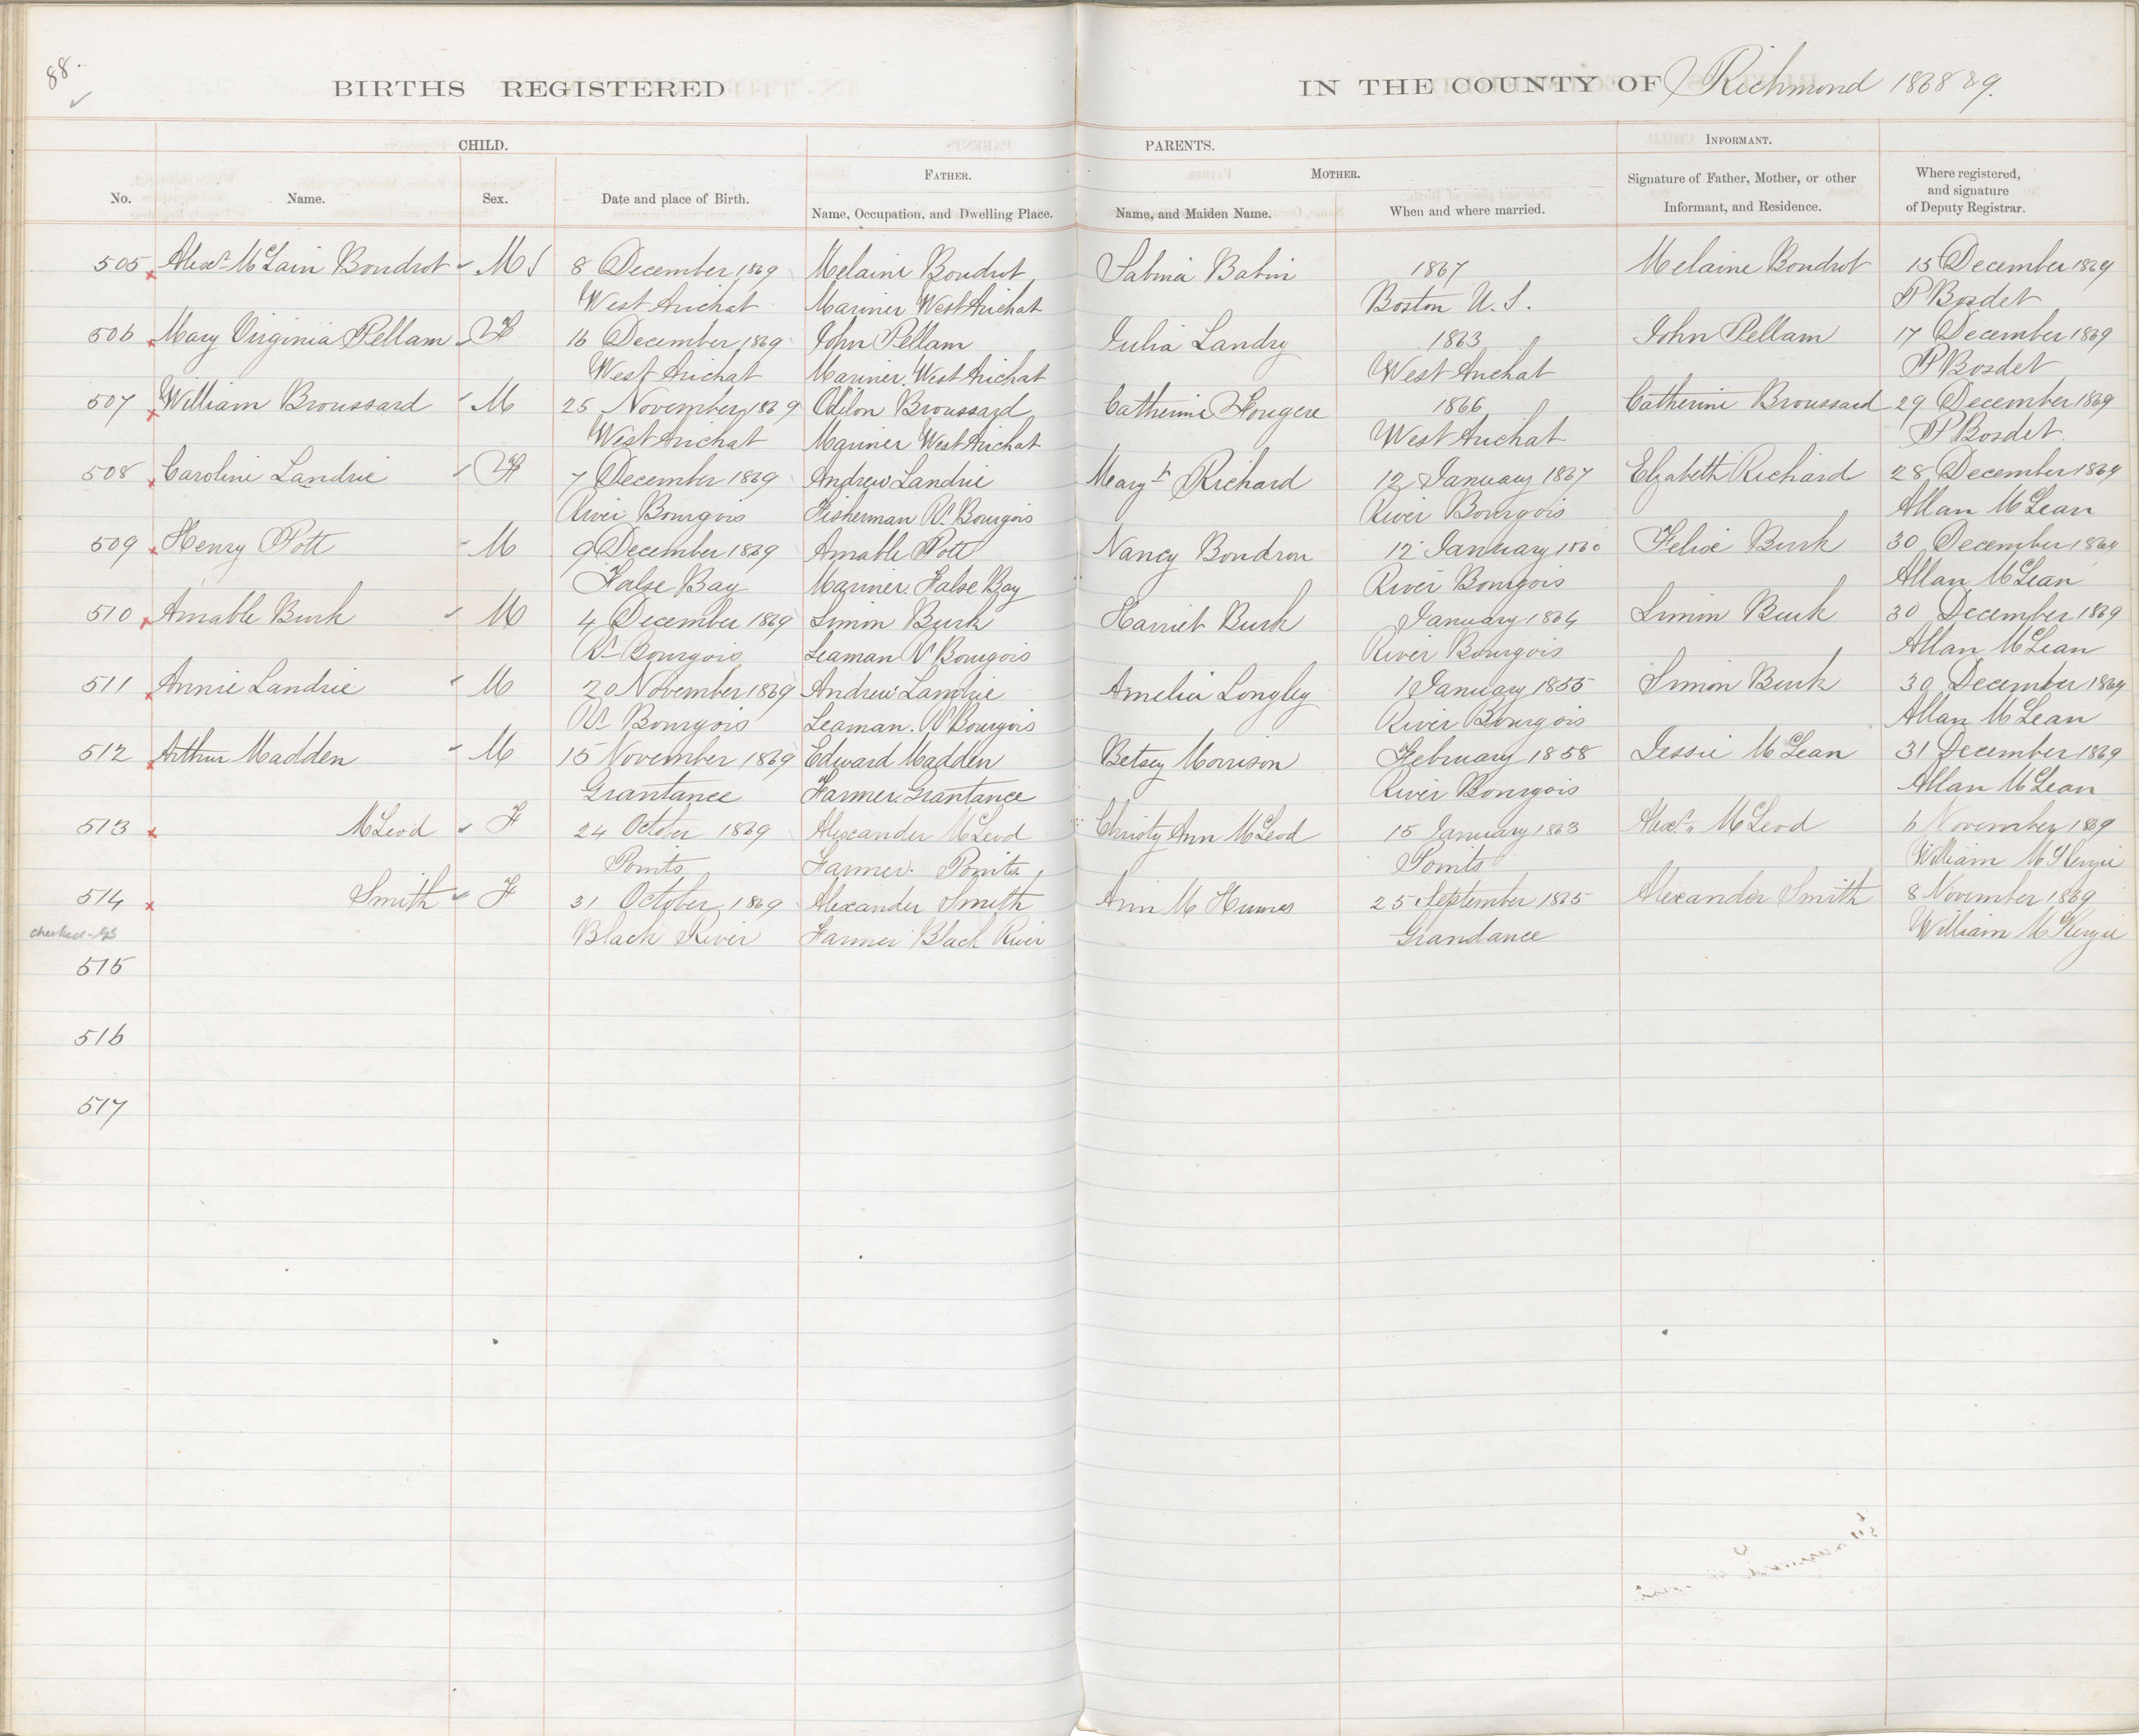 88.
BIRTHS REGISTERED IN THE COUNTY OF Richmond 1868 & 9.
CHILD. PARENTS. INFORMANT.
No. Name. Sex. Date and place of Birth. FATHER. Name, Occupation, and Dwelling Place. MOTHER. Name, and Maiden Name. When and where married. Signature of Father, Mother, or other Informant, and Residence. Where registered, and signature of Deputy Registrar.
505 Alexr McLain Boudrot M 8 December 1869 Melaine Boudrot Sabina Babin 1867 Melaine Boudrot 15 December 1869
West Arichat Mariner West Arichat Boston U.S. P Bosdet
506 Mary Virginia Pellam F 16 December 1869 John Pellam Julia Landry 1863 John Pellam 17 December 1869
West Arichat Mariner. West Arichat West Arichat P Bosdet
507 William Broussard M 25 November 1869 Odilon Broussard Catherine Fougere 1866 Catherine Broussard 29 December 1869
West Arichat Mariner West Arichat West Arichat P Bosdet.
508 Caroline Landrie F 7 December 1869 Andrew Landrie Mary Richard 12 January 1867 Elizabeth Richard 28 December 1869
River Bourgois Fisherman Rr Bourgois River Bourgois Allan McLean
509 Henry Pott M 9 December 1869 Amable Pott Nancy Boudrou 12 January 1860 Felix Burk 30 December 1869
False Bay Mariner. False Bay River Bourgois Allan McLean
510 Amable Burk M 4 December 1869 Simon Burk Harriet Burk January 1864 Simon Burk 30 December 1869
Rr Bourgois Seaman Rr Bourgois River Bourgois Allan McLean
511 Annie Landrie M 20 November 1869 Andrew Landrie Amelia Longley 1 January 1855 Simon Burk 30 December 1869
Rr Bourgois Seaman. Rr Bourgois River Bourgois Allan McLean
512 Arthur Madden M 15 November 1869 Edward Madden Betsey Morrison February 1858 Jessie McLean 31 December 1869
Grantance Farmer. Grantance River Bourgois Allan McLean
513 McLeod F 24 October 1869 Alexander McLeod Christy Ann McLeod 15 January 1863 Alexr McLeod 6 November 1869
Points Farmer. Points Points William McKenzie
514 Smith F 31 October 1869 Alexander Smith Ann 25 September 1865 Alexander Smith 8 November 1869
checked Black River Farmer Black River Grandance William McKenzie
515
516
517